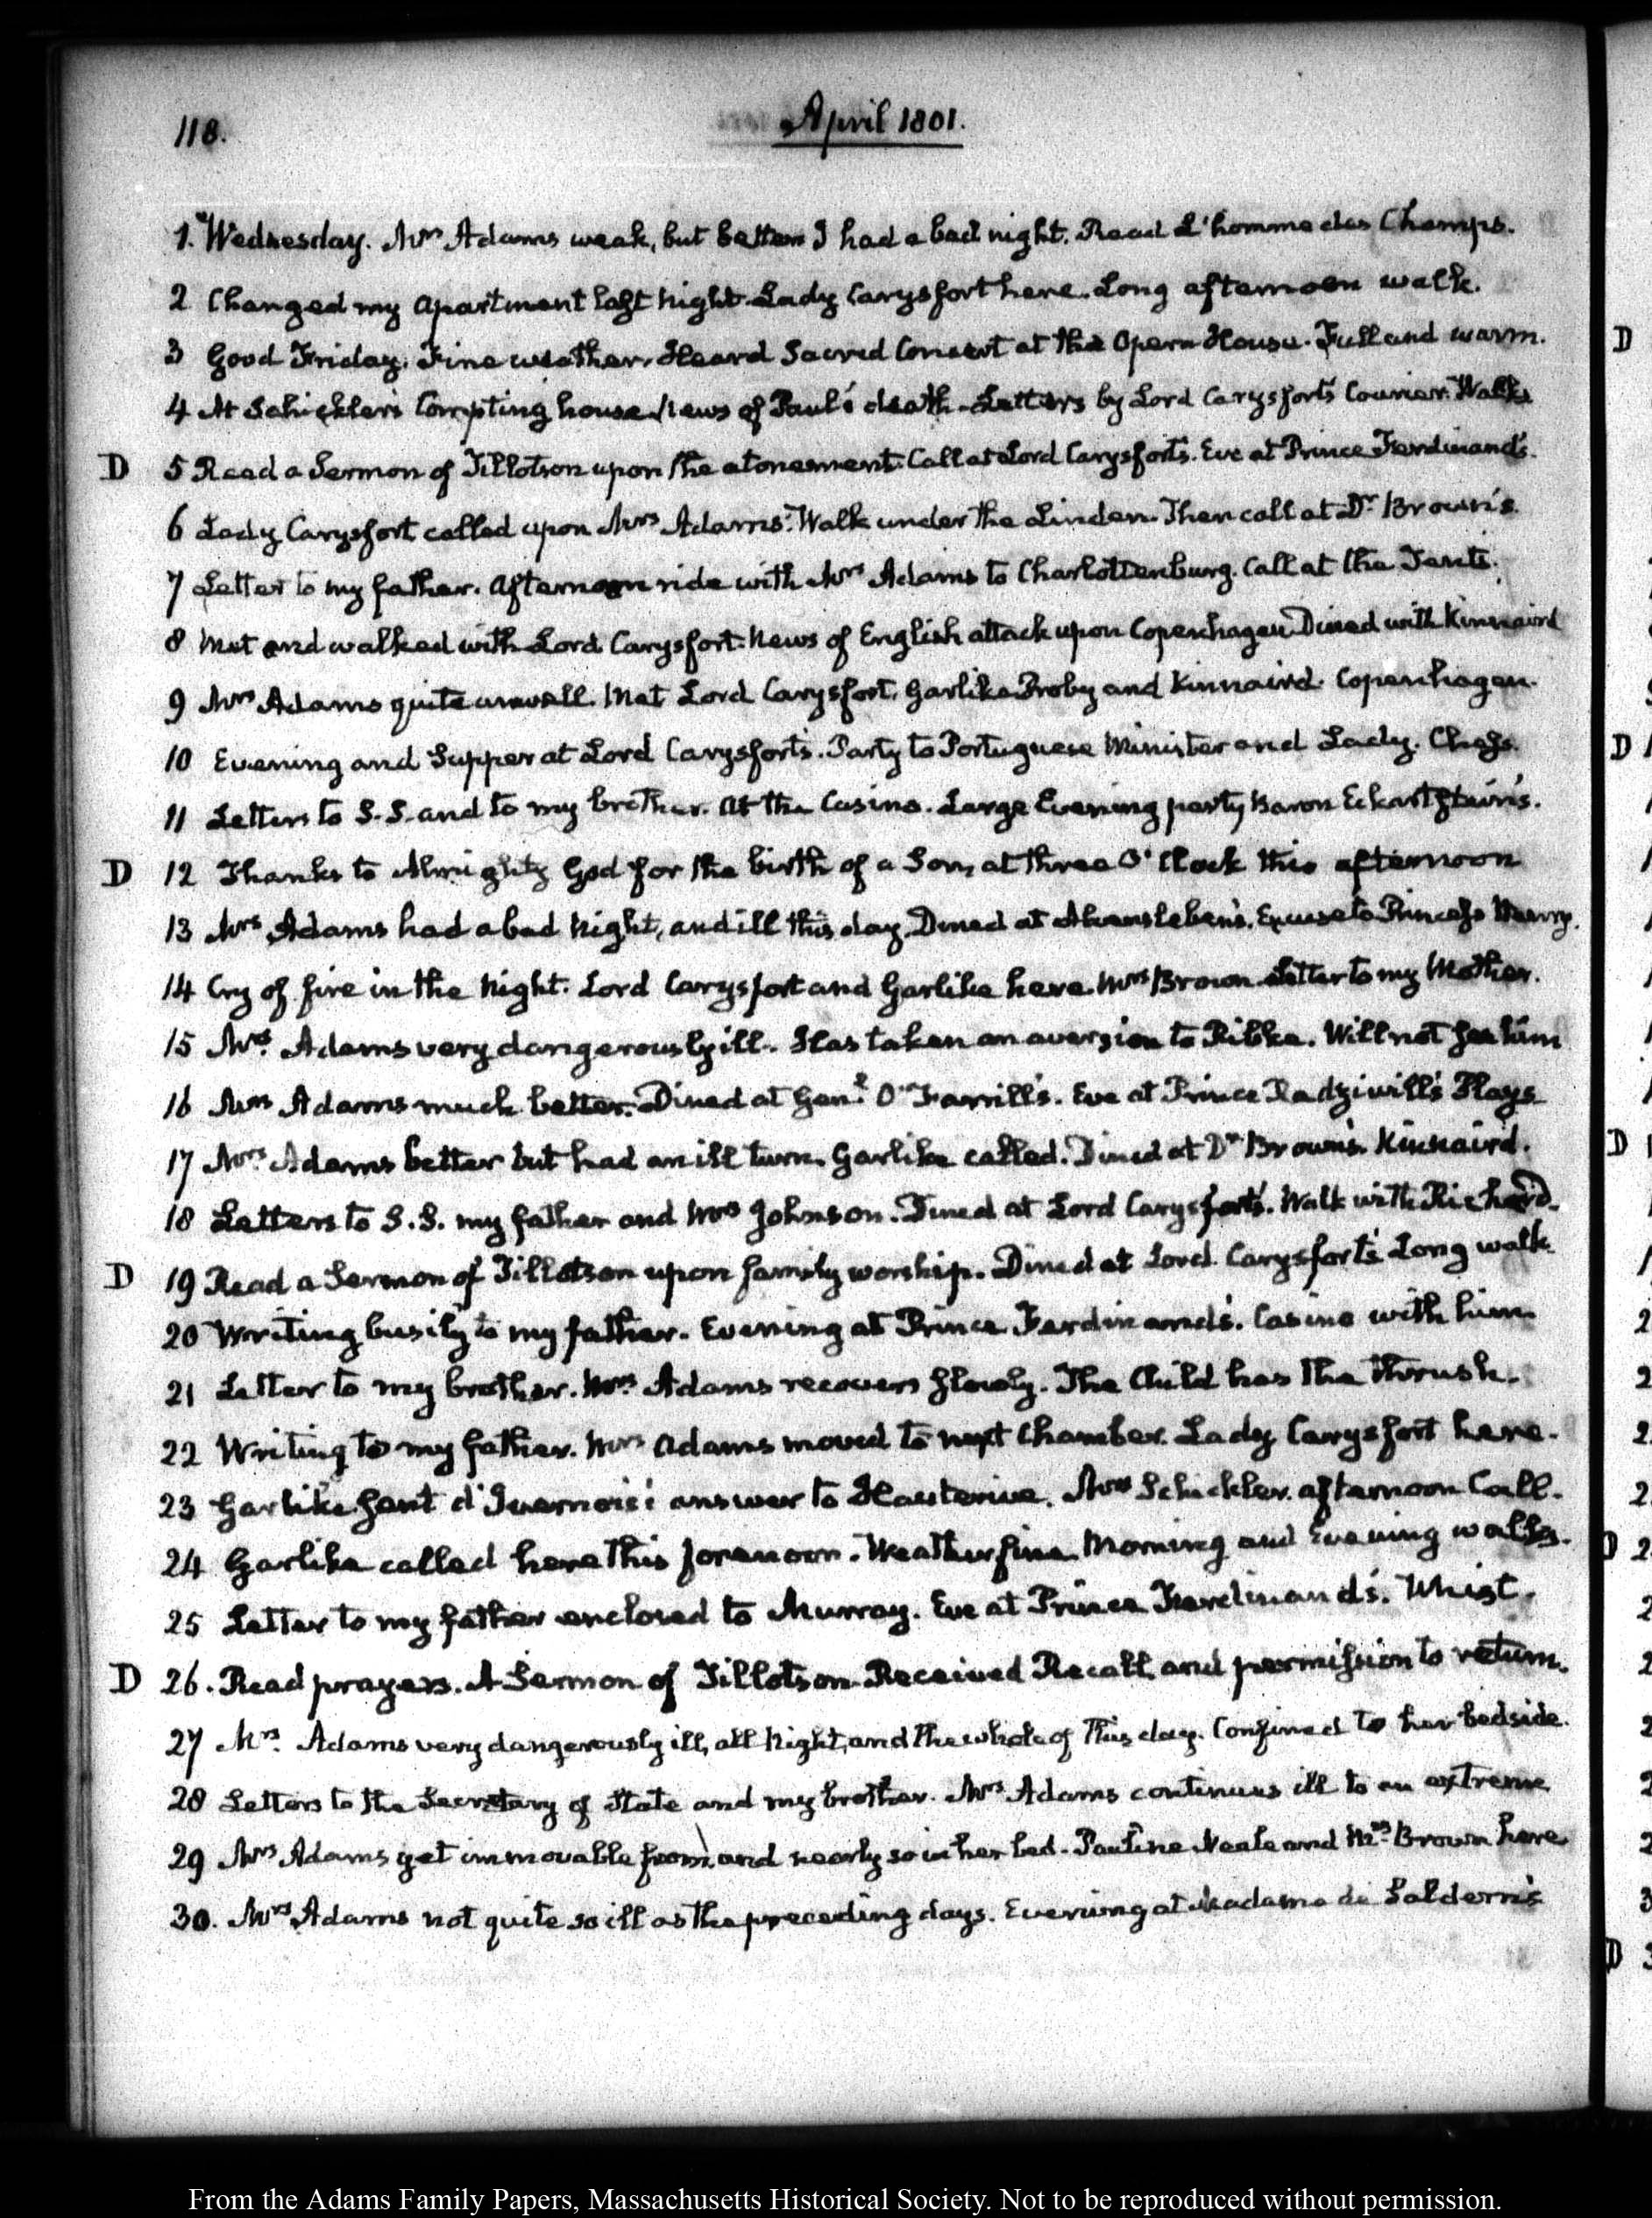 118.
April 1801.
1. Wednesday. Mrs Adams weak, but better I had a bad night. Read L'homme des Champs.
2 Changed my apartment last night. Lady Carysfort here. Long afternoon walk.
3 Good Friday. Fine weather. Heard Sacred Concert at the Opera House. Full and warm.
4 At Schickler's Compting house News of Paul's death. Letters by Lord Carysfort's Courier. Walks
D 5 Read a Sermon of Tillotson upon the atonement. Call at Lord Carysfort's. Eve at Prince Ferdinand's.
6 Lady Carysfort called upon Mrs Adams. Walk under the Linden. Then call at Dr Brown's.
7 Letter to my father. Afternoon ride with Mrs Adams to Charlottenburg. Call at the Tents.
8 Met and walked with Lord Carysfort. News of English attack upon Copenhagen Dined with Kinnaird
9 Mrs Adams quite unwell. Met Lord Carysfort. Garlike Proby and Kinnaird. Copenhagen.
10 Evening and Supper at Lord Carysfort's. Party to Portuguese Minister and Lady. Chess.
11 Letters to S.S. and to my brother. At the Casino. Large Evening party Baron Eckartstein's.
D 12 Thanks to Almighty God for the birth of a Son, at three O'Clock this afternoon
13 Mrs Adams had a bad night, and ill this day. Dined at Alvensleben's. Excuse to Princess Henry.
14 Cry of fire in the night. Lord Carysfort and Garlike here. Mrs Brown. Letter to my Mother.
15 Mrs Adams very dangerously ill. Has taken an aversion to Ribke. Will not see him
16 Mrs Adams much better. Dined at Genl. O'Farrill's. Eve at Prince Radziwill's Plays
17 Mrs Adams better but had an ill turn. Garlike called. Dined at Dr Brown's. Kinnaird.
18 Letters to S.S. my father and Mrs Johnson. Dined at Lord Carysfort's. Walk with Richard.
D 19 Read a Sermon of Tillotson upon family worship. Dined at Lord Carysfort's Long walk
20 Writing busily to my father. Evening at Prince Ferdinand's. Casino with him
21 Letter to my brother. Mrs Adams recovers slowly. The Child has the thrush.
22 Writing to my father. Mrs Adams moved to next Chamber. Lady Carysfort here.
23 Garlike sent d'Ivernois's answer to Hauterive. Mrs Schickler. afternoon Call.
24 Garlike called here this forenoon. Weather fine. Morning and Evening walks.
25 Letter to my father enclosed to Murray. Eve at Prince Ferdinand's. Whist.
D 26. Read prayers. A Sermon of Tillotson. Received Recall, and permission to return.
27 Mrs. Adams very dangerously ill, all night, and the whole of this day. Confined to her bedside.
28 Letters to the Secretary of State and my brother. Mrs Adams continues ill to an extreme
29 Mrs Adams yet immovable from, and nearly so in her bed. Pauline Neale and Mrs Brown here
30. Mrs Adams not quite so ill as the preceding days. Evening at Madame de Saldern's
From the Adams Family Papers, Massachusetts Historical Society. Not to be reproduced without permission.